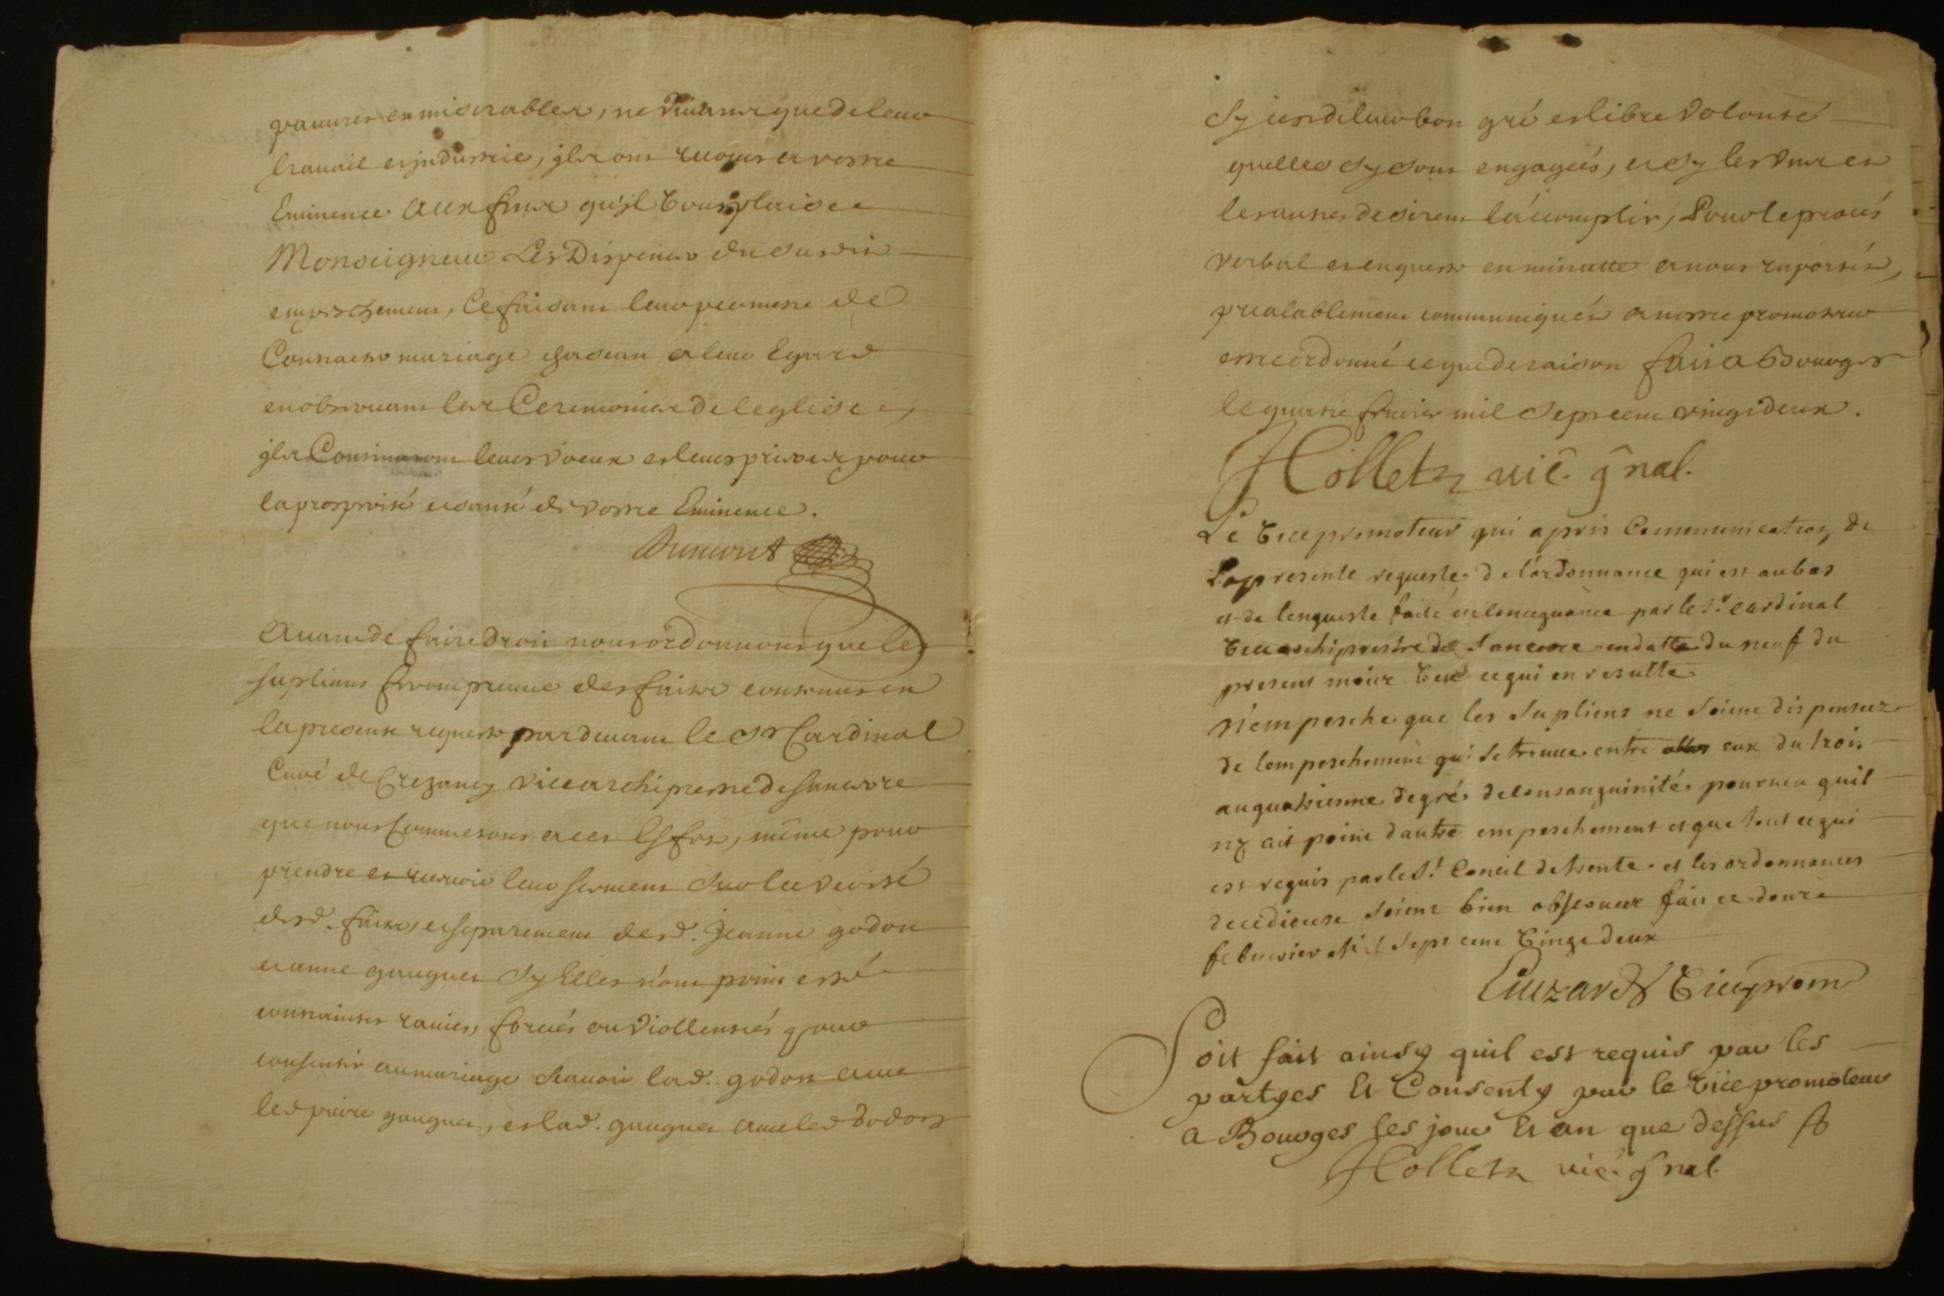 pauures et miserables, ne viuans que de leur
trauail et jndustrie, jls ont recours a vostre
Eminence aux fins qu'jl vous plaise
Monseigneur Les Dispenser du susdit
empeschement, Ce faisant leur permettre de
Contracter mariage chacun a leur Egard
en obseruant les Ceremonies de leglise,
jls Continueront leurs voeux et leurs prieres pour
la prosperité et santé de vostre Eminence.
Auant de faire droit nous ordonnons que les
suplians feront preuue des faits contenus en
la presente requeste pardeuant le Sr Cardinal
Curé de Crezancy vice archiprestre de sancerre
que nous Commettons a cet Effet, même pour
prendre et receuoir leur serment sur la verité
desd. faits, et separement desd. Jeanne godon
et anne gaugues sy Elles n'ont point esté
contraintes rauies, forcées ou viollentées pour
consentir au mariage scauoir lad. godon auec
led pierre gaugues, et lad. gaugues auec led Dodon
Sy cest de leur bon gré et libre volonté
quelles sy sont engagées, et sy les vns et
les autres desirent laccomplir, Pour le procés
verbal et enqueste en minutte a nous raportés,
prealablement communiqués a nostre promoteur
estre ordonné ce que de raison fait a Bourges
le quatre feurier mil sept cent vingt deux.
Hollet vic. gnal.
Le vice promoteur qui a pris Communication de
La presente requeste, de l'ordonnance qui est au bas
et de lenqueste faite en consequance par le Sr Cardinal
vice archiprestre de Sancerre en datte du neuf du
present mois veu ce qui en resulte
N'empesche que les supliens ne soient dispensez
de lempeschement qui se trouue entre eux du trois
au quatriesme degré de consanguinité pourueu quil
ny ait point d'autre empeschement et que tout ce qui
est requis par le St Concil de trente et les ordonnances
de ce diocese soient bien obseruez fait ce douze
febuvrier Mil Sept cent vingt deux
viceprom
Soit fait ainsy quil est requis par les
partyes Et Consenty par le vice promoteur
a Bourges les jour Et an que dessus
Hollet vic. gnal.